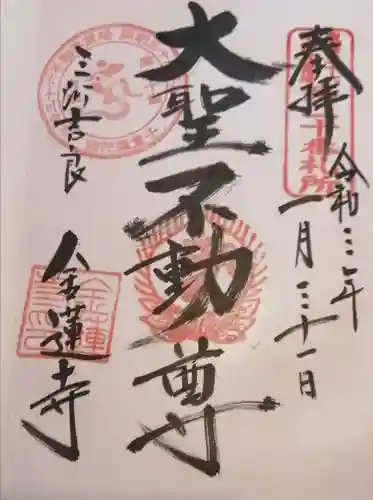 奉拝
令和三年
一月三十一日
大聖不動尊
三河吉良
金蓮寺